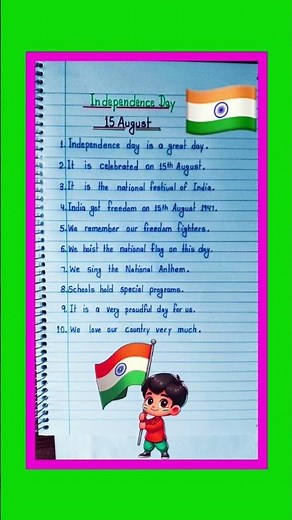 Independence Day
15 August
1. Independence day is a great day.
2. It is celebrated on 15th August.
3. It is the national festival of India.
4. India got freedom on 15th August 1947.
5. We remember our freedom fighters.
6. We hoist the national flag on this day.
7. We sing the National Anthem.
8. Schools hold special programs.
9. It is a very proudful day for us.
10. We love our country very much.